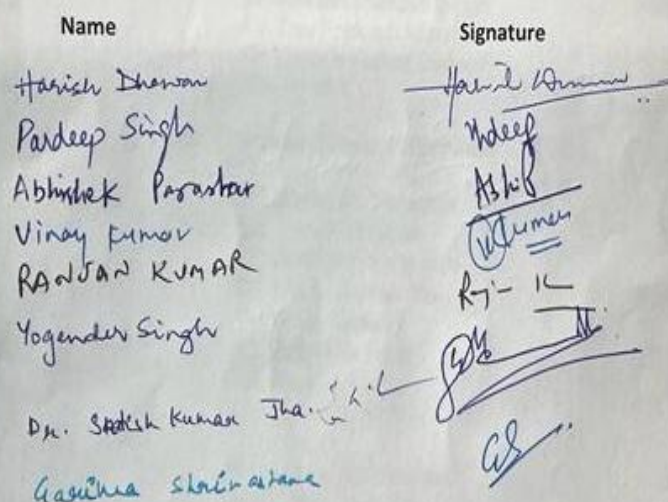 Name Signature
Harish Dhawan
Pardeep Singh Pdeep
Abhishek Parashar Abhi
Vinay Kumar VKumar
RANJAN KUMAR
Yogender Singh
Dr. Satish Kumar Jha.
Garima Shrivastava GS